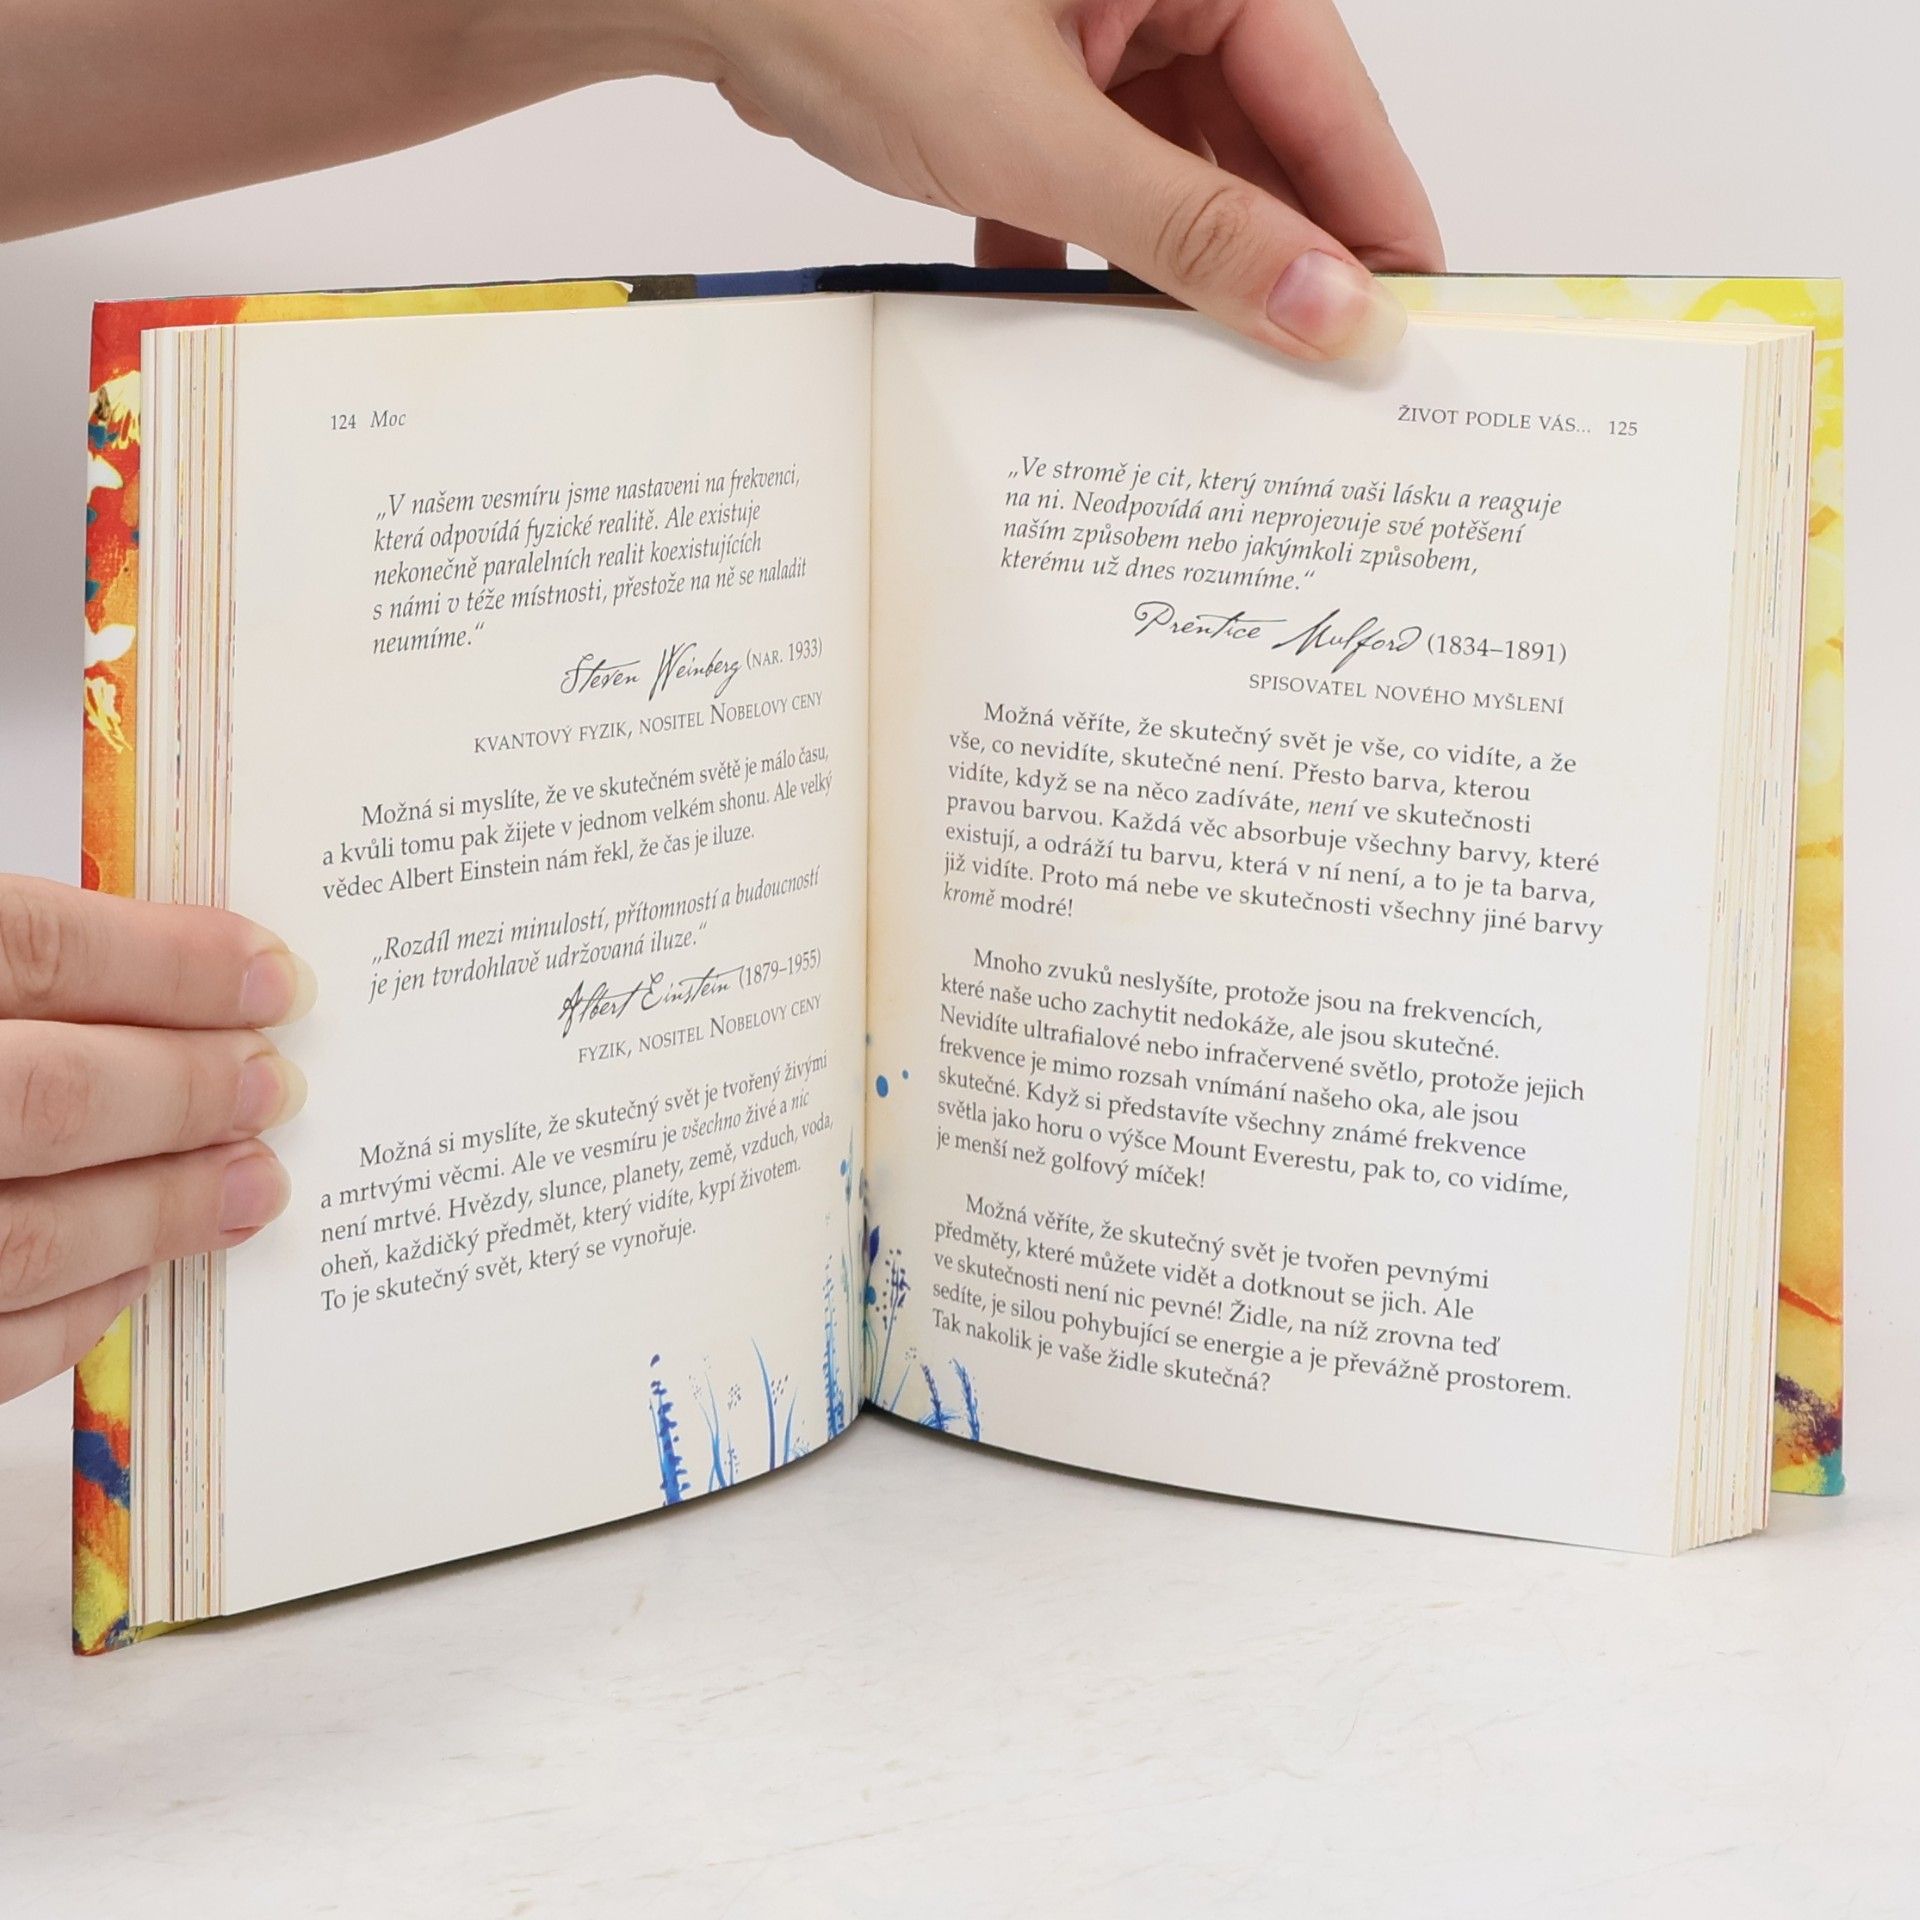 124 Moc
„V našem vesmíru jsme nastaveni na frekvenci,
která odpovídá fyzické realitě. Ale existuje
nekonečně paralelních realit koexistujících
s námi v téže místnosti, přestože na ně se naladit
neumíme.“
Steven Weinberg (NAR. 1933)
KVANTOVÝ FYZIK, NOSITEL NOBELOVY CENY
Možná si myslíte, že ve skutečném světě je málo času,
a kvůli tomu pak žijete v jednom velkém shonu. Ale velký
vědec Albert Einstein nám řekl, že čas je iluze.
„Rozdíl mezi minulostí, přítomností a budoucností
je jen tvrdohlavě udržovaná iluze.“
Albert Einstein (1879–1955)
FYZIK, NOSITEL NOBELOVY CENY
Možná si myslíte, že skutečný svět je tvořený živými
a mrtvými věcmi. Ale ve vesmíru je všechno živé a nic
není mrtvé. Hvězdy, slunce, planety, země, vzduch, voda,
oheň, každičký předmět, který vidíte, kypí životem.
To je skutečný svět, který se vynořuje.
ŽIVOT PODLE VÁS... 125
„Ve stromě je cit, který vnímá vaši lásku a reaguje
na ni. Neodpovídá ani neprojevuje své potěšení
naším způsobem nebo jakýmkoli způsobem,
kterému už dnes rozumíme.“
Prentice Mulford (1834–1891)
SPISOVATEL NOVÉHO MYŠLENÍ
Možná věříte, že skutečný svět je vše, co vidíte, a že
vše, co nevidíte, skutečné není. Přesto barva, kterou
vidíte, když se na něco zadíváte, není ve skutečnosti
pravou barvou. Každá věc absorbuje všechny barvy, které
existují, a odráží tu barvu, která v ní není, a to je ta barva,
již vidíte. Proto má nebe ve skutečnosti všechny jiné barvy
kromě modré!
Mnoho zvuků neslyšíte, protože jsou na frekvencích,
které naše ucho zachytit nedokáže, ale jsou skutečné.
Nevidíte ultrafialové nebo infračervené světlo, protože jejich
frekvence je mimo rozsah vnímání našeho oka, ale jsou
skutečné. Když si představíte všechny známé frekvence
světla jako horu o výšce Mount Everestu, pak to, co vidíme,
je menší než golfový míček!
Možná věříte, že skutečný svět je tvořen pevnými
předměty, které můžete vidět a dotknout se jich. Ale
ve skutečnosti není nic pevné! Židle, na níž zrovna teď
sedíte, je silou pohybující se energie a je převážně prostorem.
Tak nakolik je vaše židle skutečná?